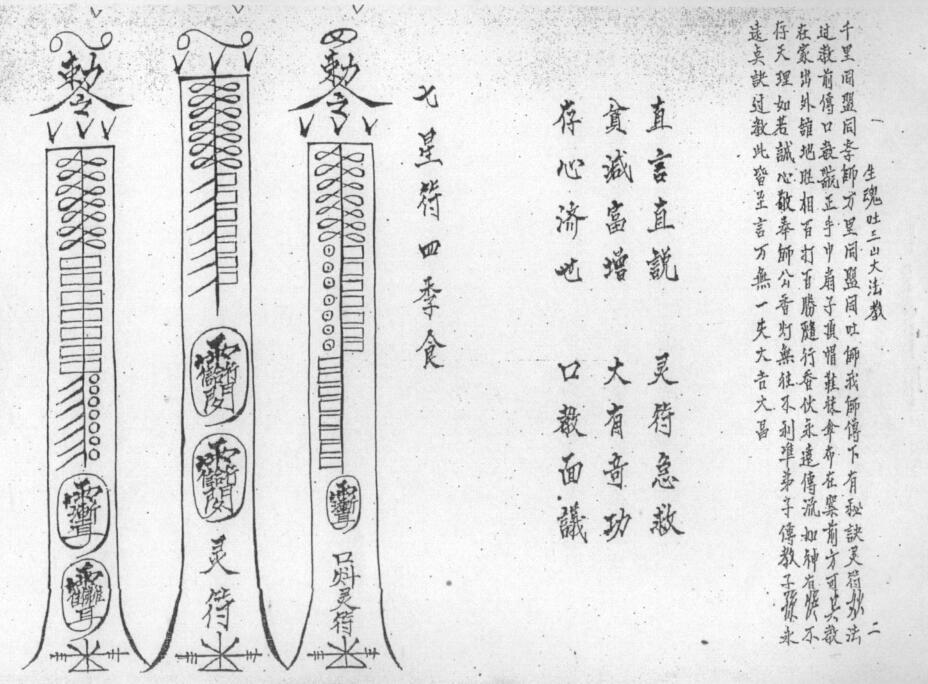 一
生魂吐三山大法教
二
千里同盟同孝師方里同盟同吐師我師傳下有秘訣灵符妙法
过教前傳口教䛐正手巾扇子頂帽鞋袜傘布在案前方可其教
在家出外雖地胜相百打百勝隨行香伏永遠傳流如神有不
存天理如若誠心敬奉師公香灯無往不利準弟子傳教子孫永
遠貞訣过教此皆至言万無一失大吉大昌
直言直説 灵符急救
貧減富增 大有奇功
存心济世 口教面議
七星符四季食
勅令
口灵符
灵符
勅令